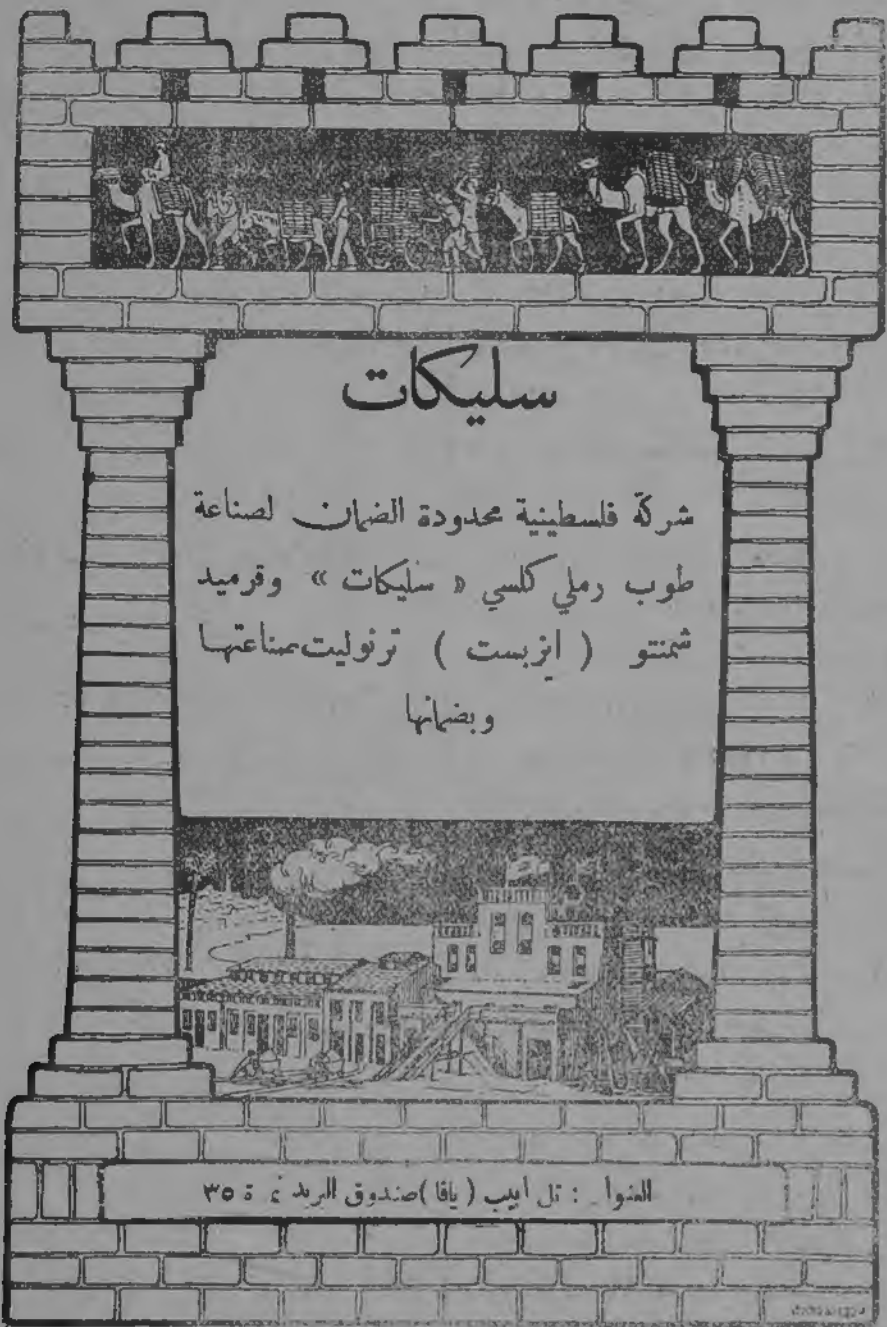 سليكات
شركة فلسطينية محدودة الضمان لصناعة
طوب رملي كلسي « سليكات » وقرميد
شمنتو ( ايزبست ) ترنوليت بصناعتها
وبضمانها
العنوا : تل ابيب ( يافا ) صندوق البريد ٣٥